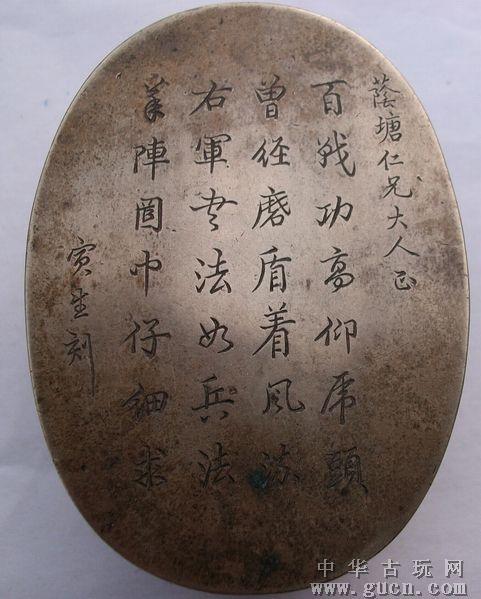 蔭塘仁兄大人正
百战功高仰虎頭
曾经磨盾着風流
右軍书法如兵法
筆陣圖中仔細求
寅生刻
中华古玩网
www.gucn.com